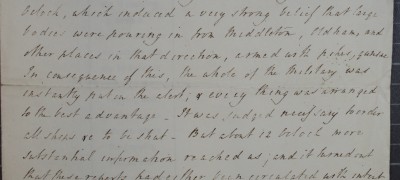 oclock, which induced a very strong belief that large
bodies were pouring in from Middleton, Oldham, and
other places in that direction, armed with pikes,
In consequence of this, the whole of the Military was
instantly put on the alert; & every thing was arranged
to the best advantage. It was judged necessary to order
all shops &c to be shut. But about 12 oclock more
substantial information reached us, and it turned out
that these reports had either been circulated with intent